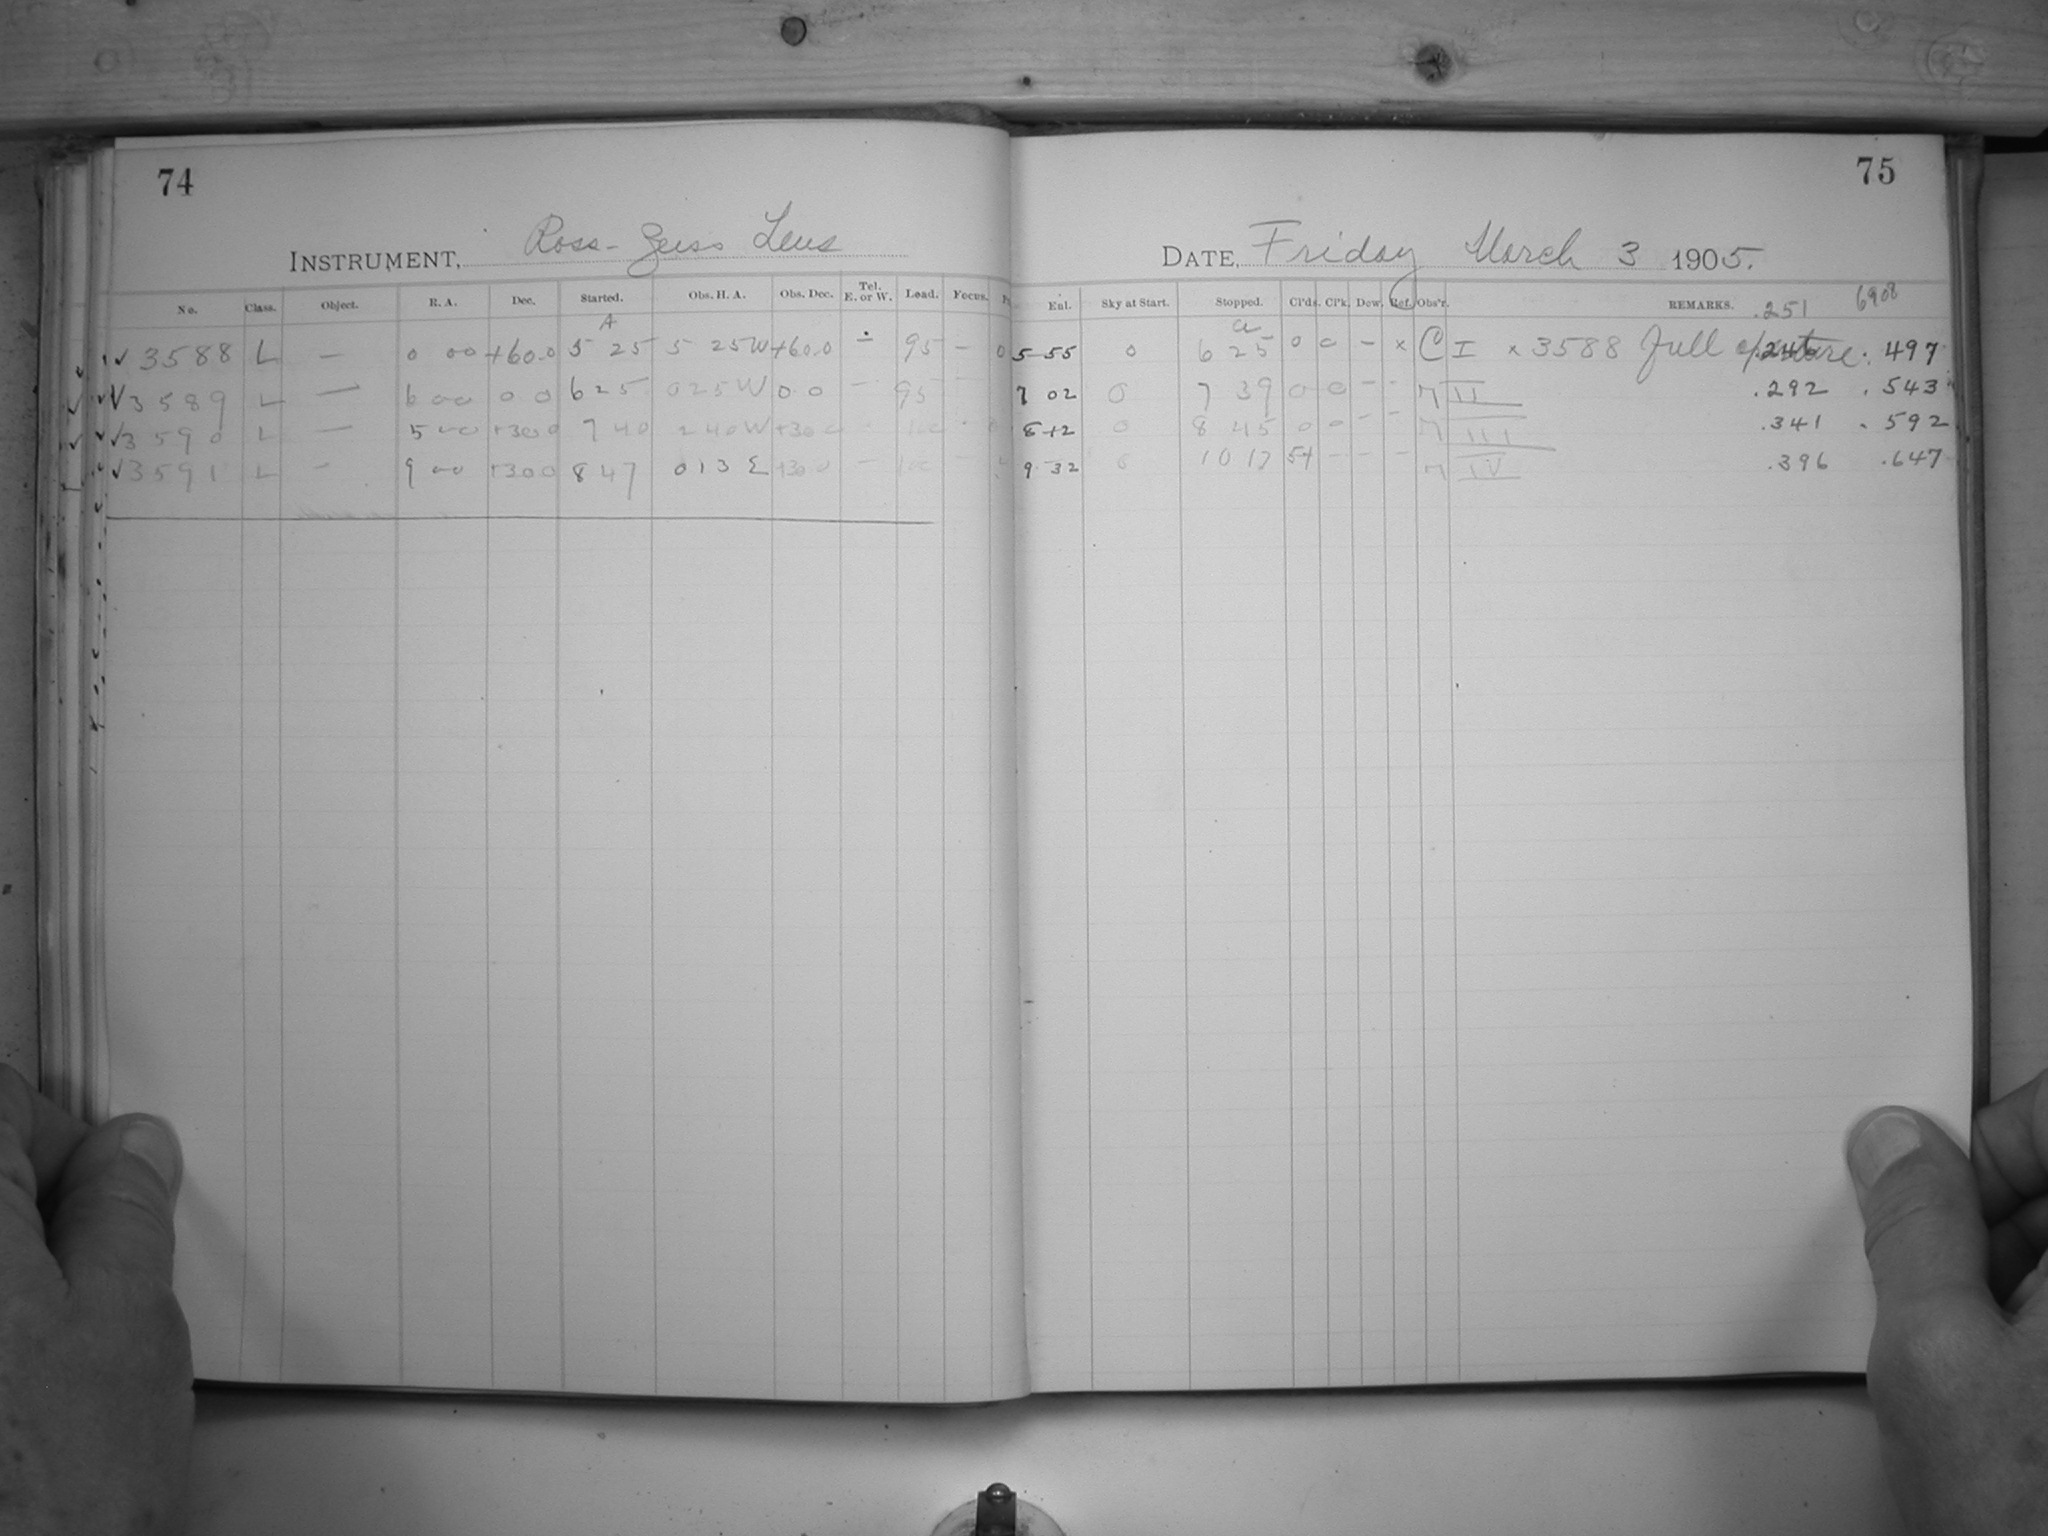 74
INSTRUMENT, Ross-Zeiss Lens
No. Class. Object. R. A. Dec. Started. Obs. H. A. Obs. Dec. Tel. E. or W. Load. Focus.
A
√ 3588 L — 0 00 +60.0 5 25 5 25W +60.0 95 — 0
√ 3589 L — 6 00 0 0 6 25 0 25 W 0.0 — 95
√ 3590 L — 5 00 +30 0 7 40 2 40W +30 0
√ 3591 L — 9 00 +30 0 8 47 0 13 E +30 0 —
75
DATE, Friday March 3 1905.
Exl. Sky at Start. Stopped. Cl'ds. Cl'k. Dew. Ref. Obs'r. REMARKS. .251 6908
a
5 55 0 6 25 0 0 — x C I x 3588 Full aperture .246 .497
7 02 0 7 39 0 0 - - M II .292 .543
8 12 0 8 45 0 0 - - M III .341 .592
9 32 0 10 17 54 - - - M IV .396 .647